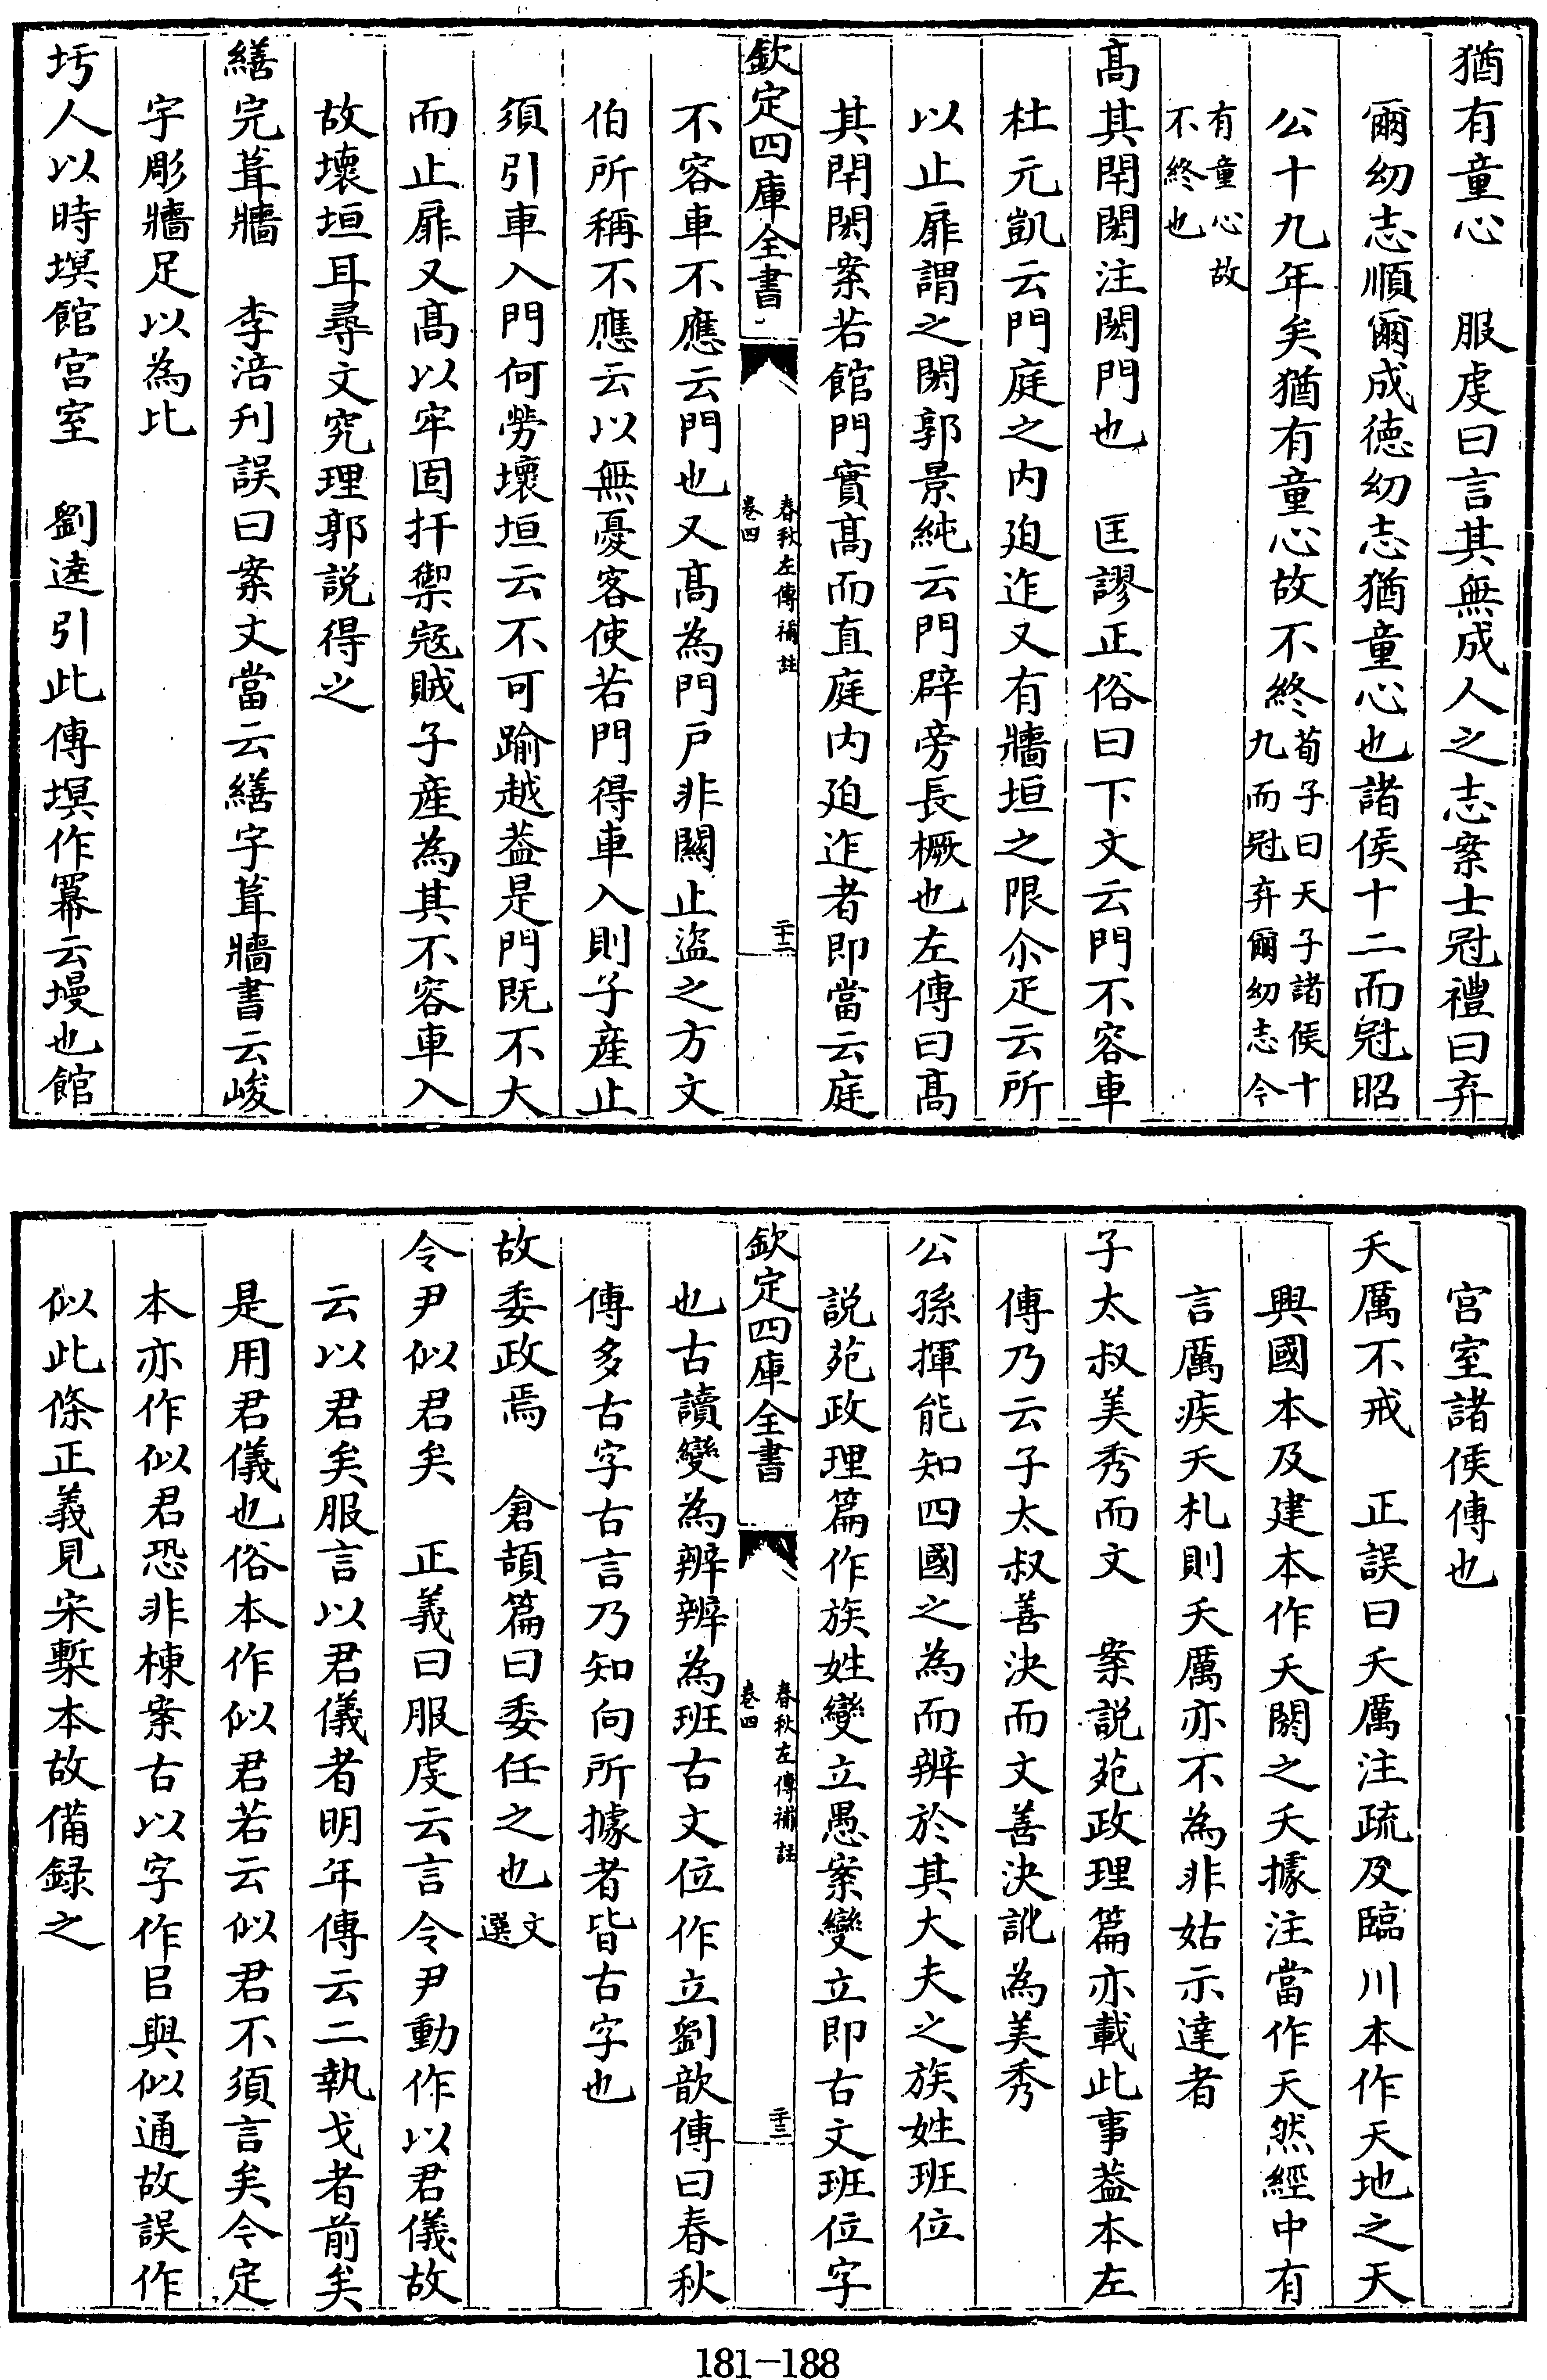 猶有童心　服虔曰言其無成人之志案士冠禮曰弃
爾幼志順爾成德幼志猶童心也諸侯十二而冠昭
公十九年矣猶有童心故不終荀子曰天子諸侯十
九而冠弃爾幼志令
有童心故
不終也
高其閈閎注閎門也　匡謬正俗曰下文云門不容車
杜元凱云門庭之內迫迮又有牆垣之限尒疋云所
以止扉謂之閎郭景純云門辟旁長橛也左傳曰高
其閈閎案若館門實高而直庭內迫迮者即當云庭
欽定四庫全書
春秋左傳補註
卷四
二十二
不容車不應云門也又高為門戶非關止盜之方文
伯所稱不應云以無憂客使若門得車入則子產止
須引車入門何勞壞垣云不可踰越葢是門既不大
而止扉又高以牢固扞禦寇賊子產為其不容車入
故壞垣耳尋文究理郭說得之
繕完葺牆　李涪刋誤曰案文當云繕字葺牆書云峻
宇彫牆足以為比
圬人以時塓館宮室　劉逵引此傳塓作羃云墁也館
宮室諸侯傳也
夭厲不戒　正誤曰夭厲注疏及臨川本作天地之天
興國本及建本作夭閼之夭據注當作天然經中有
言厲疾夭札則夭厲亦不為非姑示達者
子太叔美秀而文　案説苑政理篇亦載此事葢本左
傳乃云子太叔善決而文善決訛為美秀
公孫揮能知四國之為而辨於其大夫之族姓班位
説苑政理篇作族姓變立愚案變立即古文班位字
欽定四庫全書
春秋左傳補註
卷四
二十三
也古讀變為辨辨為班古文位作立劉歆傳曰春秋
傳多古字古言乃知向所據者皆古字也
故委政焉　倉頡篇曰委任之也文
選
令尹似君矣　正義曰服虔云言令尹動作以君儀故
云以君矣服言以君儀者明年傳云二執戈者前矣
是用君儀也俗本作似君若云似君不須言矣令定
本亦作似君恐非棟案古以字作㠯與似通故誤作
似此條正義見宋槧本故備録之
181-188